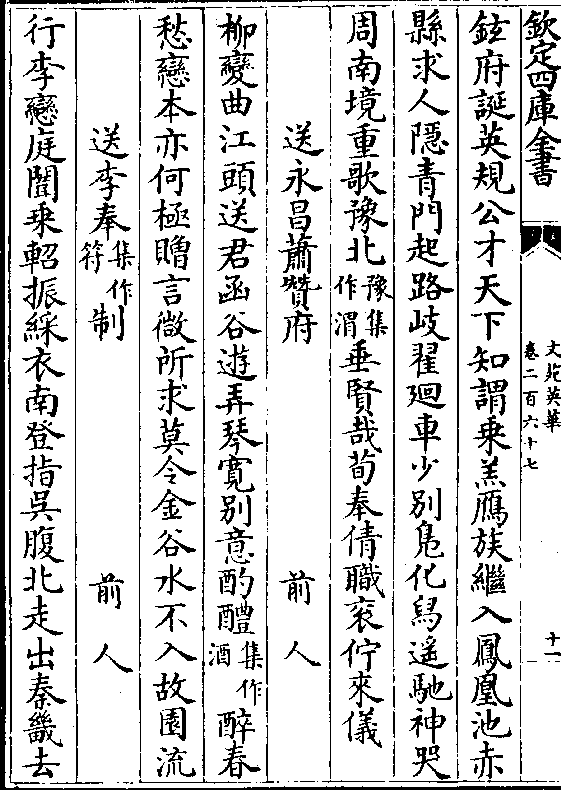 欽定四庫全書
文苑英華
卷二百六十七
十一
鉉府誕英規公才天下知謂乘羔鴈族繼入鳳凰池赤
縣求人隱青門起路岐翟廻車少別鳬化舄遙馳神哭
周南境重歌豫北豫集作渭垂賢哉荀奉倩職衮佇來儀
送永昌蕭贊府 前人
柳變曲江頭送君函谷遊弄琴寛別意酌醴集作酒醉春
愁戀本亦何極贈言微所求莫令金谷水不入故園流
送李奉集作符制 前人
行李戀庭闈乗軺振綵衣南登指吳腹北走出秦畿去